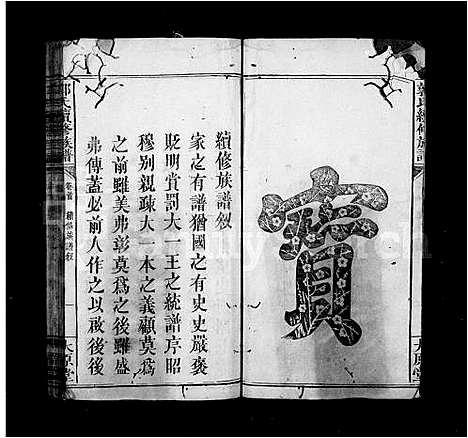 郭氏續修族譜
太原堂
寶
續修族譜敘
家之有譜猶國之有史史嚴褒
貶明賞罰大一王之統譜序昭
穆別親疎大一本之義顧莫為
之前雖美弗彰莫為之後雖盛
弗傳蓋必前人作之以啟後後
郭氏續修族譜
卷首
續修族譜敘
一
太原堂